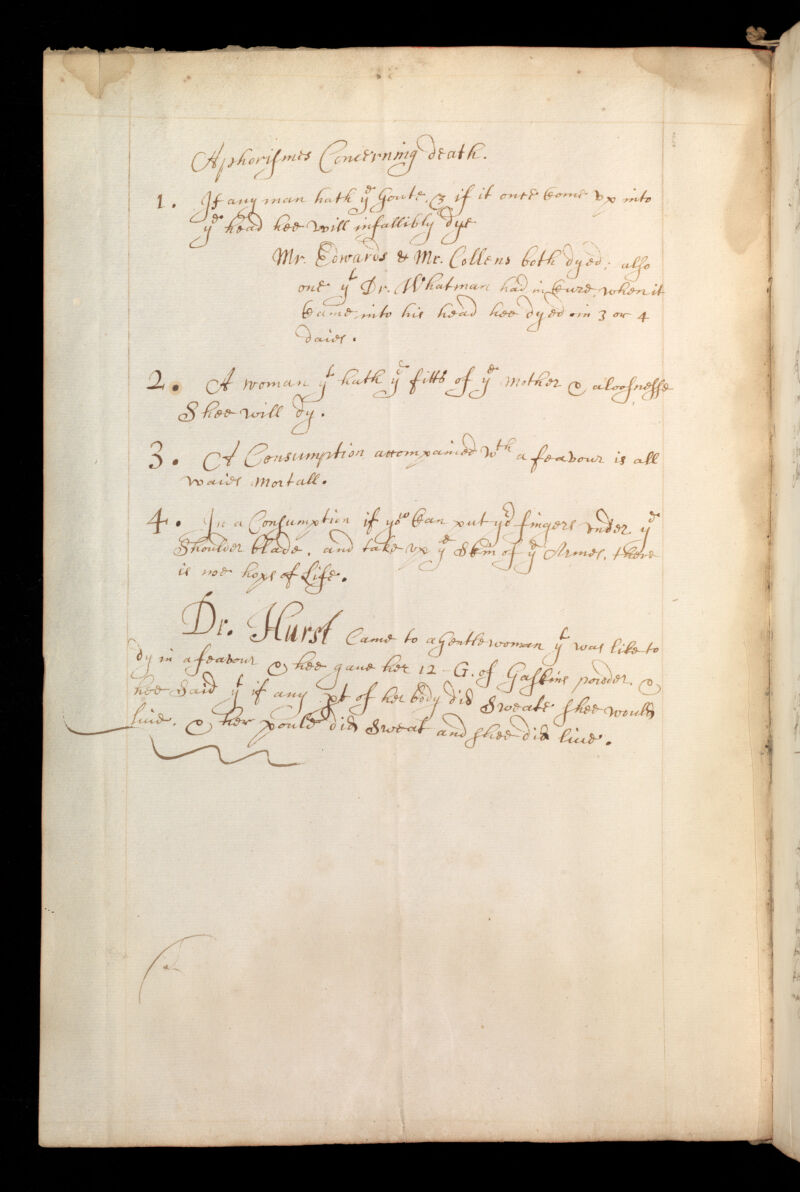 Aphorismes Concerning death.
1. If any man hath yͤ Goute & if it once Come vp into
yͤ head hee will infallibly dye
Mr. Edwards & Mr. Collens both dyed; also
one yͭ Dr. Whatman had in Cure, when it
Came into his head hee dyed in 3 or 4
daies.
2. A woman yͭ hath yͤ fitts of yͤ Mother & a loosnesse
Shee will dy.
3. A Consumption accompained wͭͪ a feavour is all
waies Mortall.
4. In a Consumption if yoͧ Can put yͬ fingers vnder yͤ
Shoulder blade, and take vp yͤ Skin of yͤ Armes, there
is noe hope of Life.
Dr. Hurst Came to a Gentlewoman yͭ was like to
dy in a feavour & hee gave her 12 G. of Gaskins powder, &
hee Said yͭ if any pt of her body did Sweate Shee would
live, & her poule did Sweat and shee did live.